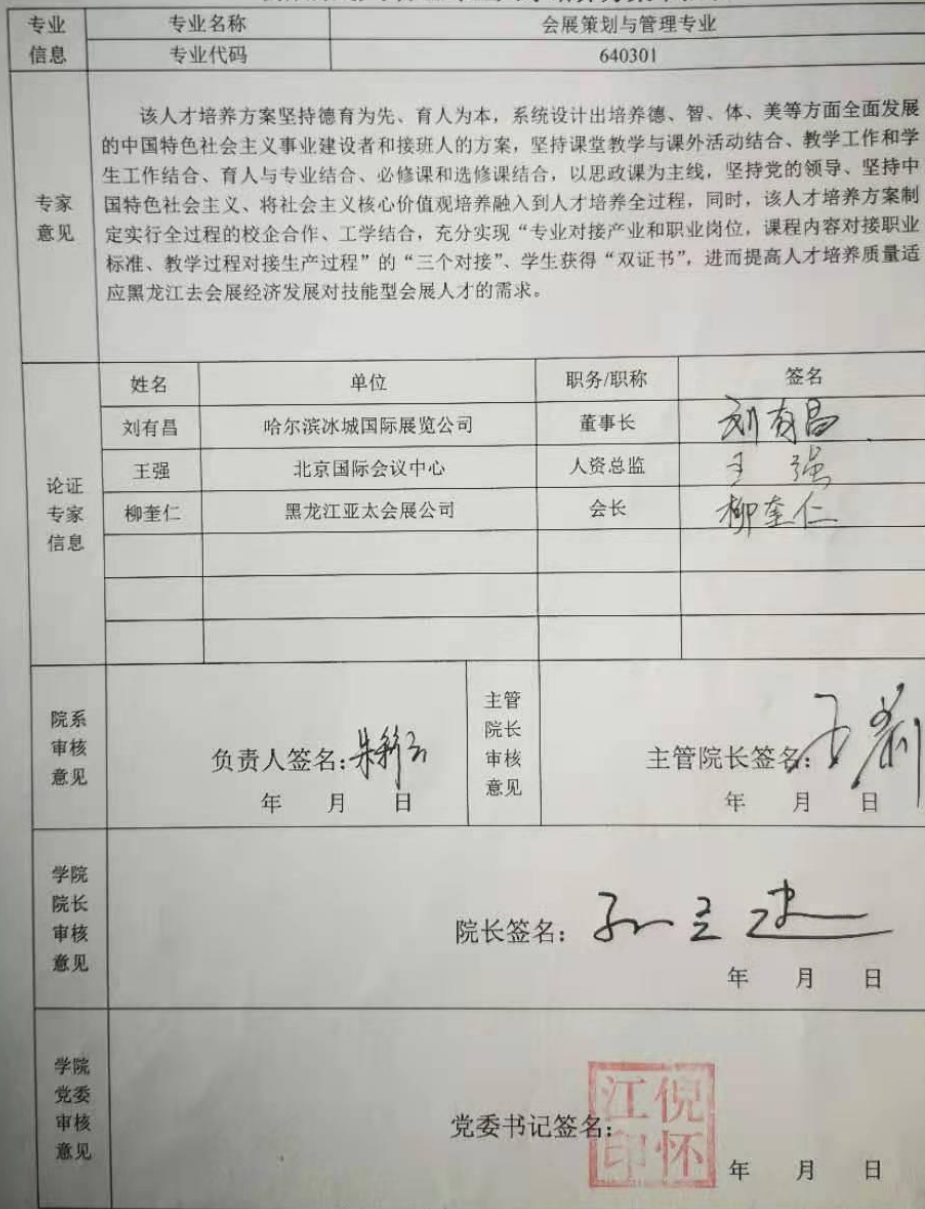 专业信息
专业名称 会展策划与管理专业
专业代码 640301
专家意见
该人才培养方案坚持德育为先、育人为本，系统设计出培养德、智、体、美等方面全面发展
的中国特色社会主义事业建设者和接班人的方案，坚持课堂教学与课外活动结合、教学工作和学
生工作结合、育人与专业结合、必修课和选修课结合，以思政课为主线，坚持党的领导、坚持中
国特色社会主义、将社会主义核心价值观培养融入到人才培养全过程，同时，该人才培养方案制
定实行全过程的校企合作、工学结合，充分实现“专业对接产业和职业岗位，课程内容对接职业
标准、教学过程对接生产过程”的“三个对接”、学生获得“双证书”，进而提高人才培养质量适
应黑龙江去会展经济发展对技能型会展人才的需求。
论证专家信息
姓名 单位 职务/职称 签名
刘有昌 哈尔滨冰城国际展览公司 董事长 刘有昌
王强 北京国际会议中心 人资总监 王强
柳奎仁 黑龙江亚太会展公司 会长 柳奎仁
院系审核意见
负责人签名：
年 月 日
主管院长审核意见
主管院长签名：
年 月 日
学院院长审核意见
院长签名：
年 月 日
学院党委审核意见
党委书记签名：
倪怀江印
年 月 日